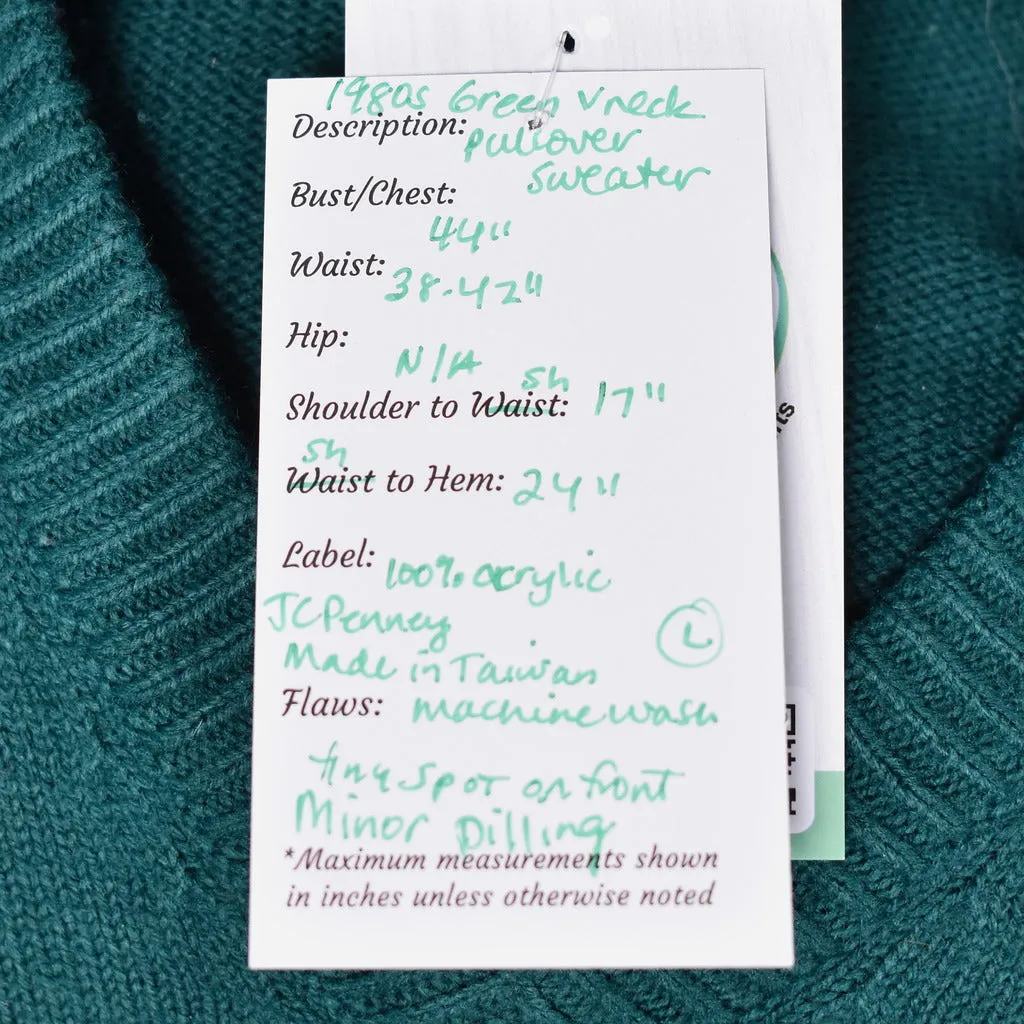 1980s Green V neck
Description: pullover
sweater
Bust/Chest:
44"
Waist: 38-42"
Hip:
N/A
sh
Shoulder to Waist: 17"
sh
Waist to Hem: 24"
Label: 100% acrylic
JCPenney
L
Made in Taiwan
Flaws: machine wash
tiny spot on front
Minor pilling
*Maximum measurements shown
in inches unless otherwise noted